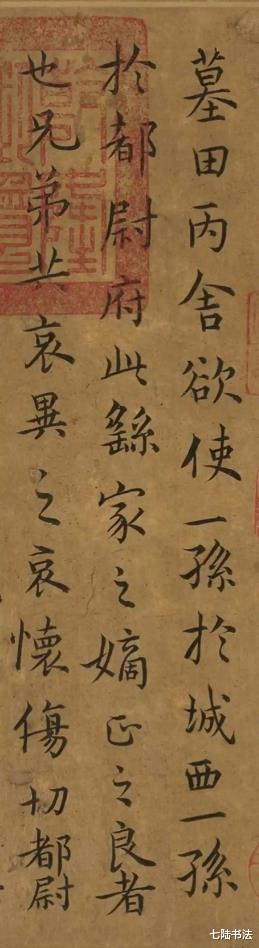 墓田丙舍欲使一孫於城西一孫
於都尉府此繇家之嫡正之良者
也兄弟共哀異之哀懷傷切都尉
七陆书法